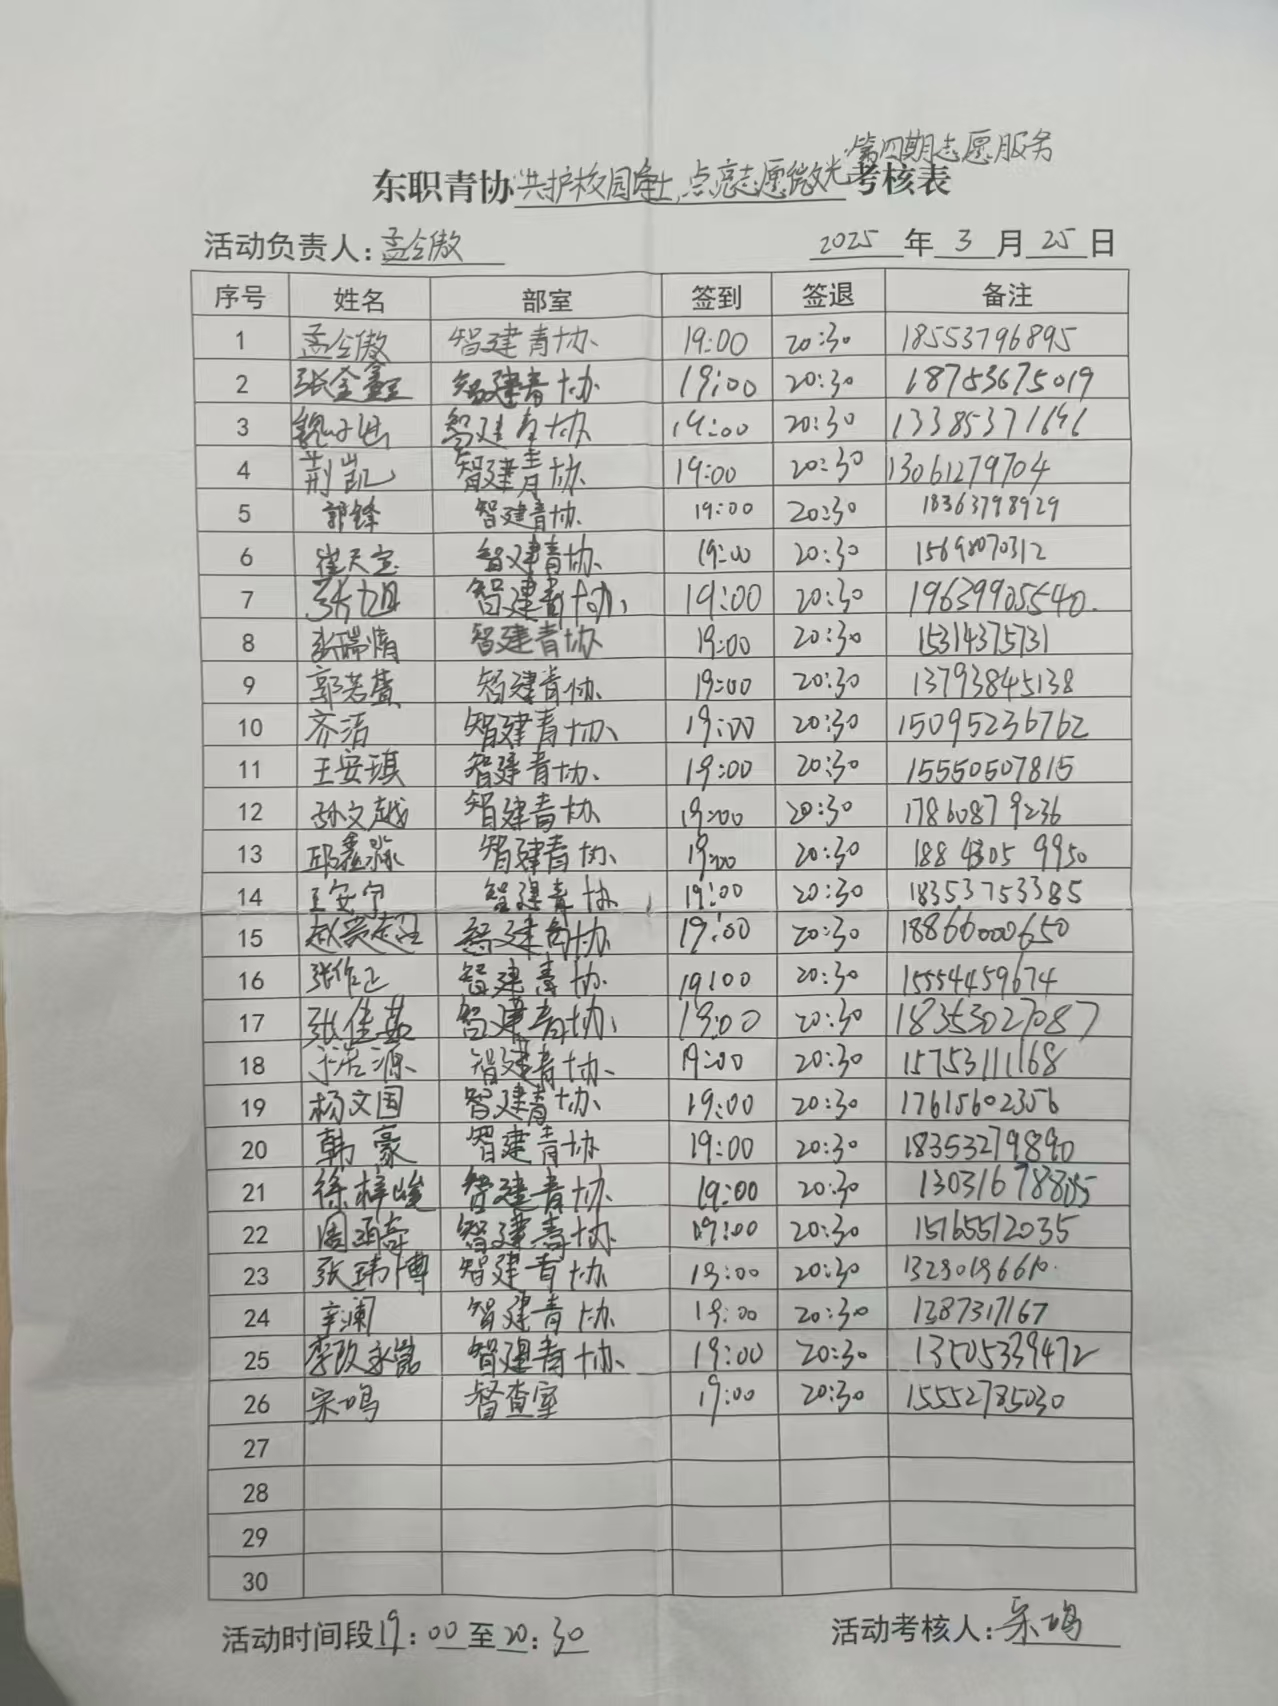 第四期志愿服务
东职青协 共护校园净土,点亮志愿微光 考核表
活动负责人:孟令傲 2025 年 3 月 25 日
序号 姓名 部室 签到 签退 备注
1 孟令傲 智建青协 19:00 20:30 18553796895
2 张金鑫 智建青协 19:00 20:30 18753675019
3 智建青协 19:00 20:30
4 荆凯 智建青协 19:00 20:30 13061279704
5 郭锋 智建青协 19:00 20:30 18363798929
6 崔天宝 智建青协 19:00 20:30 15698070312
7 张旭 智建青协 19:00 20:30 19639905540
8 张瑞倩 智建青协 19:00 20:30 15314375731
9 郭若萱 智建青协 19:00 20:30 13793845138
10 齐浩 智建青协 19:00 20:30 15095236762
11 王安琪 智建青协 19:00 20:30 15550507815
12 孙文越 智建青协 19:00 20:30 17860879236
13 邱鑫淼 智建青协 19:00 20:30
14 王安宁 智建青协 19:00 20:30 18353753385
15 智建青协 19:00 20:30 18866000650
16 张作正 智建青协 19:00 20:30 15554459674
17 张佳茹 智建青协 19:00 20:30 18353027087
18 智建青协 19:00 20:30 15753111168
19 杨文国 智建青协 19:00 20:30 17615602356
20 韩豪 智建青协 19:00 20:30 18353279890
21 徐梓峻 智建青协 19:00 20:30
22 周函奇 智建青协 19:00 20:30 15165512035
23 张玮博 智建青协 19:00 20:30
24 辛澜 智建青协 19:00 20:30
25 智建青协 19:00 20:30 13505339472
26 宋鸣 督查室 19:00 20:30 15552785030
27
28
29
30
活动时间段 19:00 至 20:30 活动考核人:宋鸣